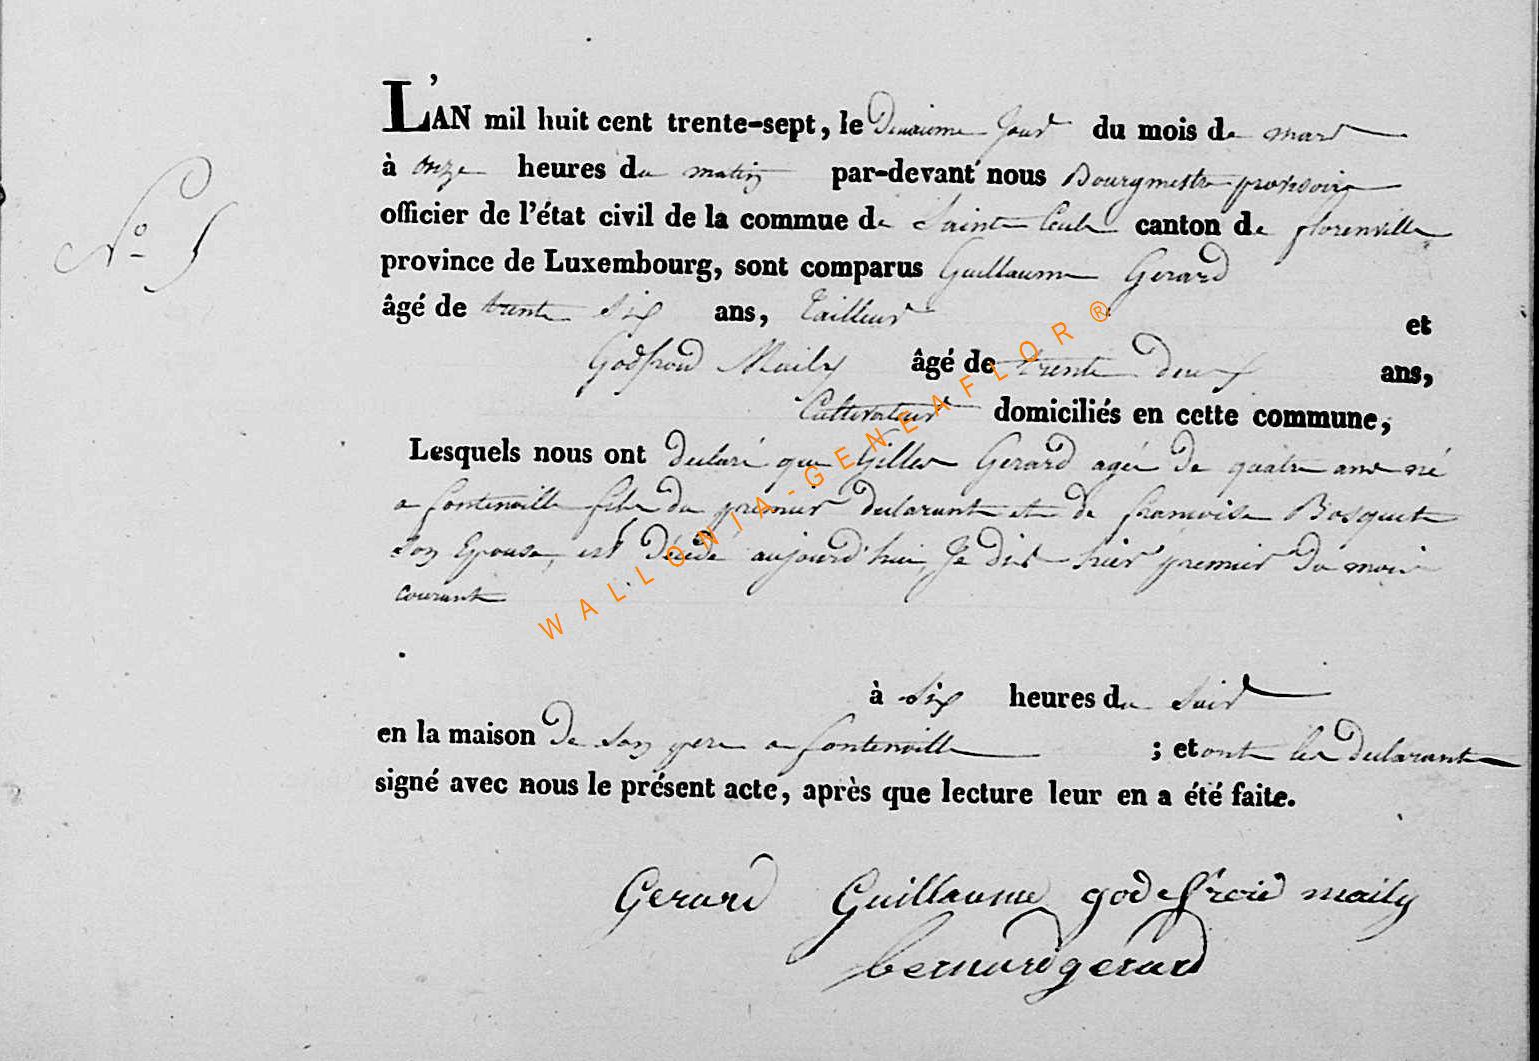 L'AN mil huit cent trente-sept, le Deuxieme Jour du mois de mars
à onze heures du matin par-devant nous Bourgmestre provisoire
officier de l'état civil de la commue de Sainte Cecile canton de florenville
N° 5
province de Luxembourg, sont comparus Guillaume Gerard
âgé de trente six ans, Tailleur et
Godfroid Maily âgé de trente deux ans,
Cultivateur domiciliés en cette commune,
Lesquels nous ont declaré que Gilles Gerard agé de quatre ans né
a fontenoille fils du premier declarant et de francoise Bosquet
son Epouse, est décédé aujourd'hui, Je dis hier premier du mois
courant
à six heures du Soir
en la maison De son pere a fontenoille ; et ont les declarants
signé avec nous le présent acte, après que lecture leur en a été faite.
Gerard Guillaume godefroid maily
bernard gerard
WALLONIA-GENEAFLOR®